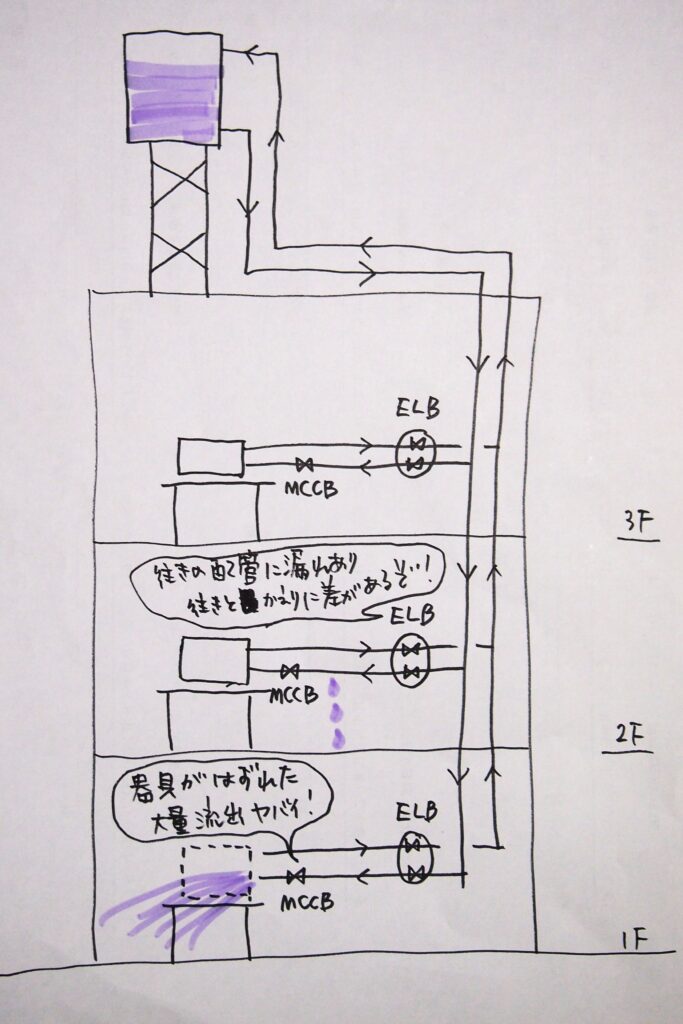 ELB
MCCB
3F
往きの配管に漏れあり
往きとかえりに差があるぞ…!
ELB
MCCB
2F
器具がはずれた
大量流出ヤバイ!
ELB
MCCB
1F